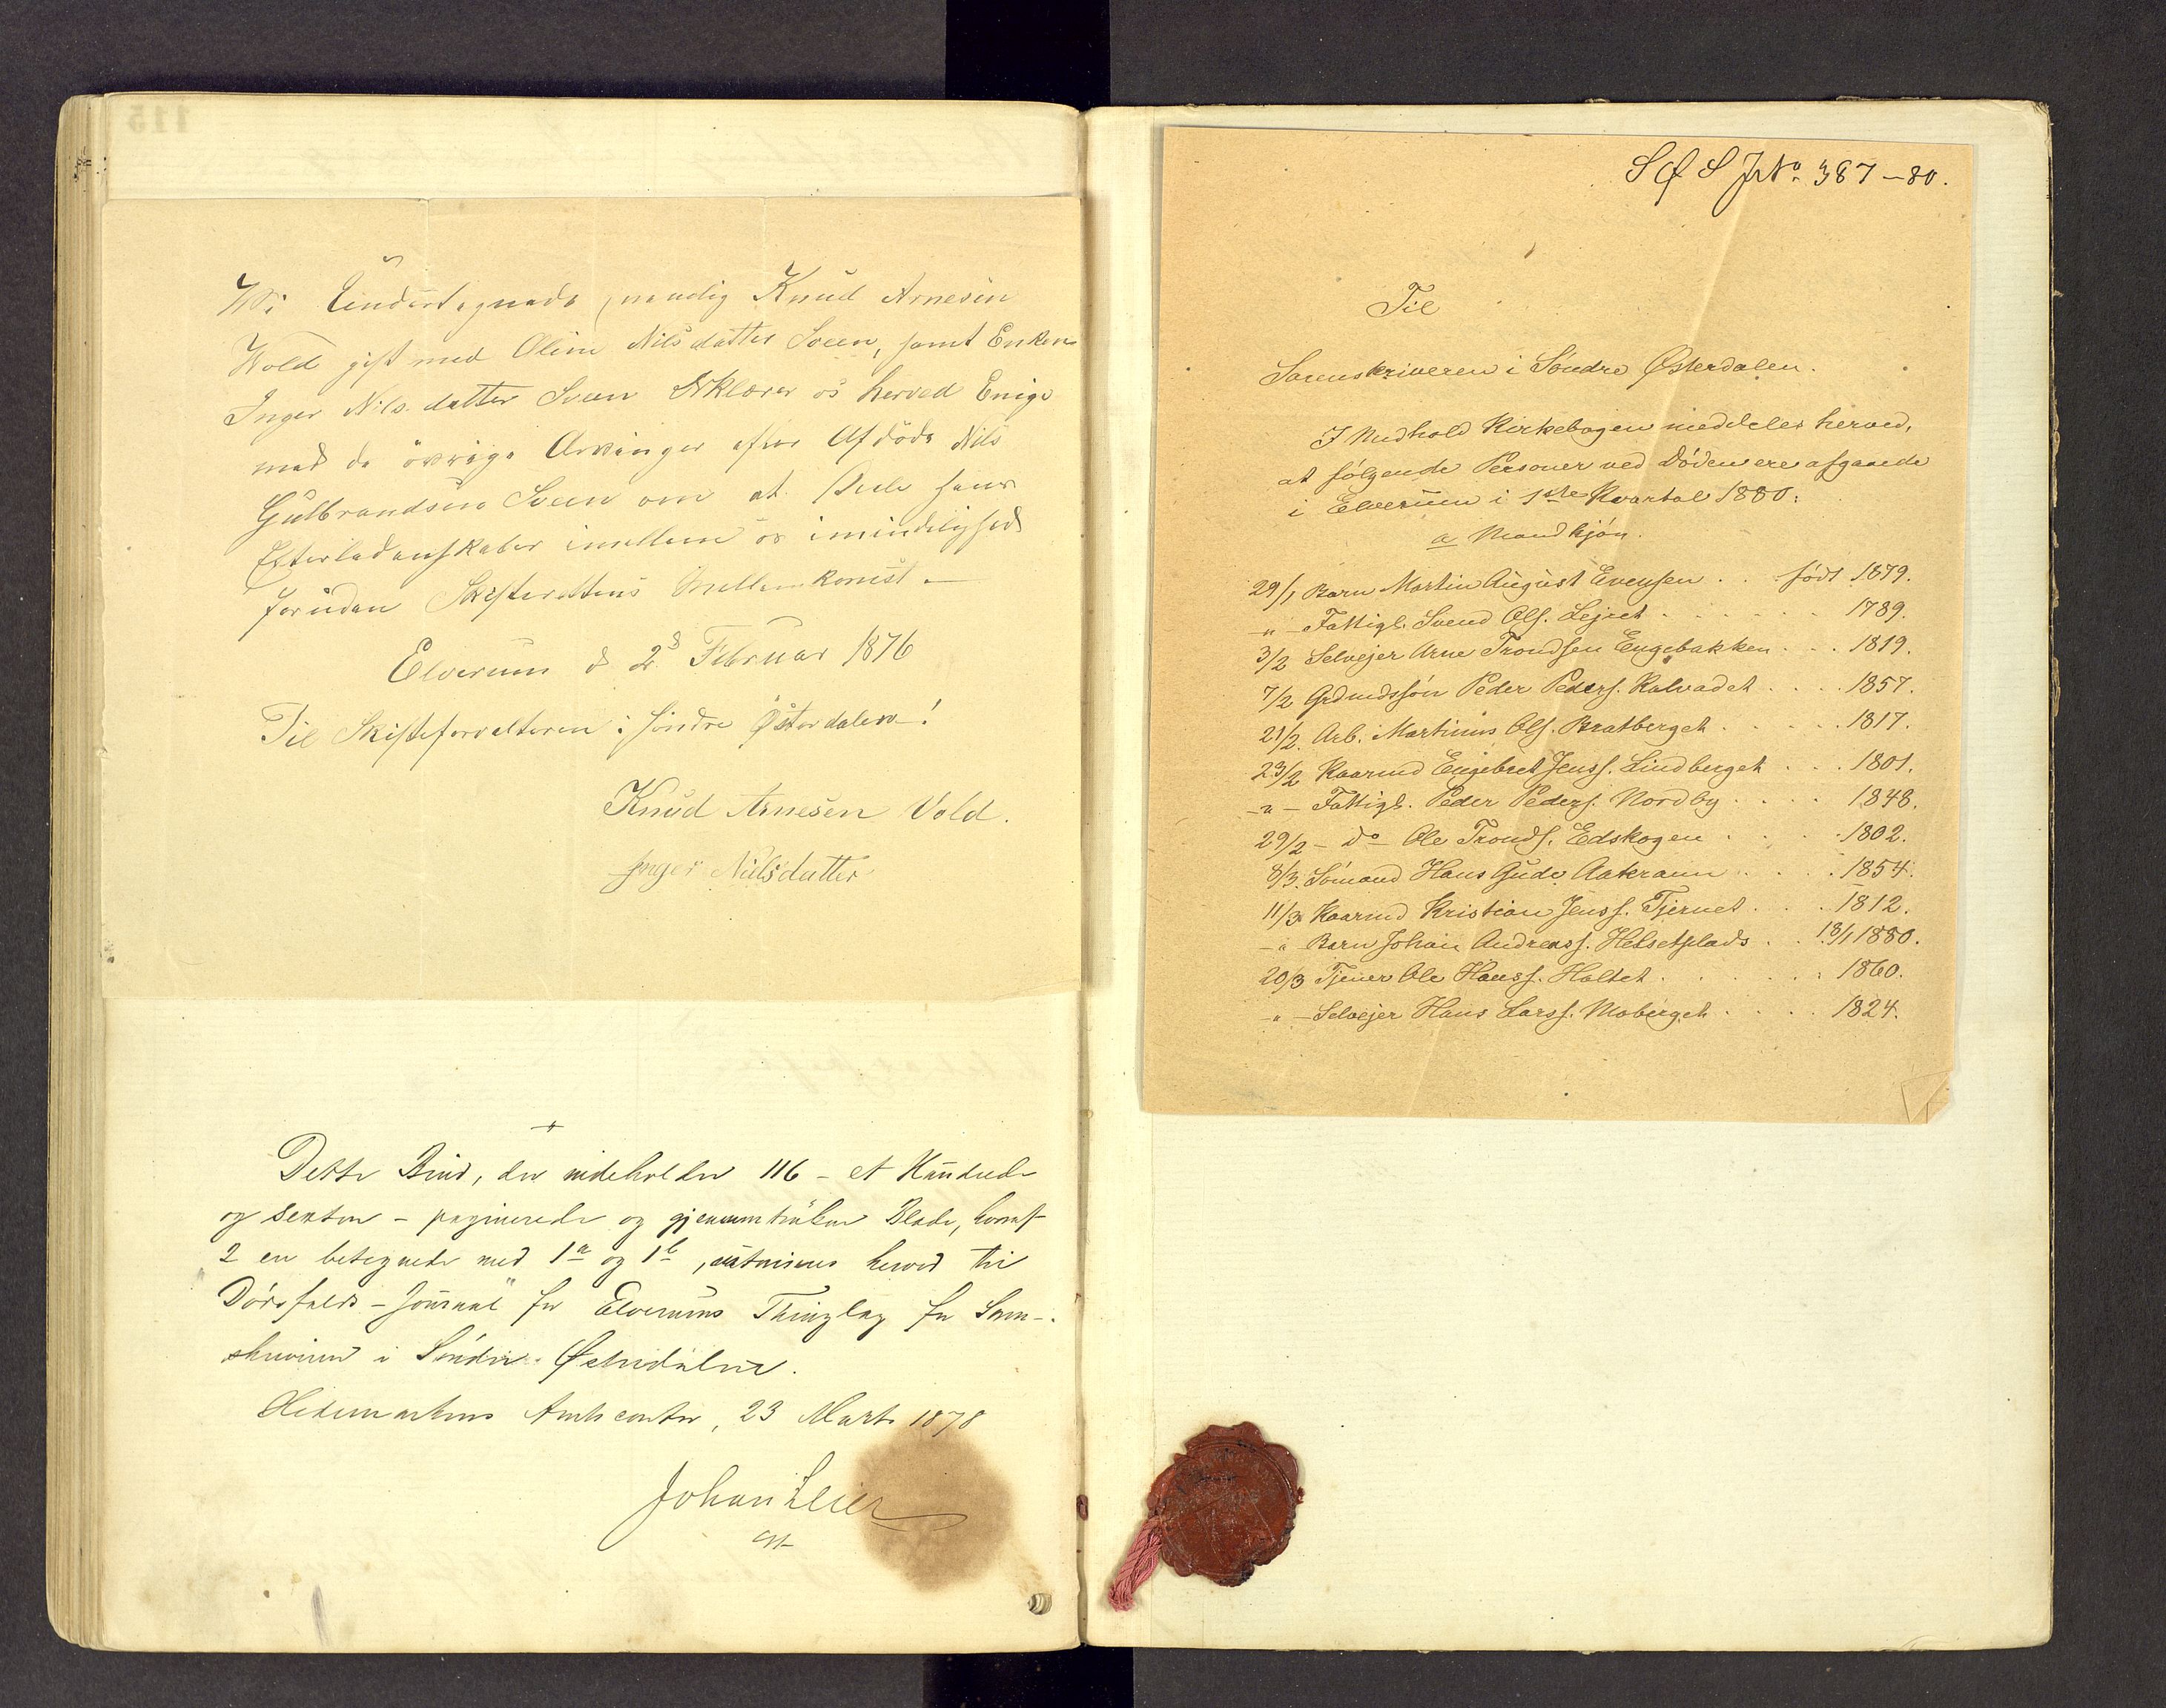 115
Wi Undertegnede, nemlig Knud Arnesen
Wold gift med Oline Nilsdatter Sveen, samt Enken
Inger Nilsdatter Sveen Erklærer os herved Enige
med de övrige Arvinger efter Afdöde Nils
Gulbrandsen Sveen om at Dele hans
Efterladenskaber imellem os i mindelighed
foruden Skifterettens Mellemkomst.
Elverum d 2 Februar 1876
Til Skifteforvalteren i söndre Österdalen!
Knud Arnesen Vold.
Inger Nilsdatter
Dette Bind, der indeholder 116 - et Hundrede
og sexten - paginerede og gjennemtrukne Blade, hvoraf
2 ere betegnede med 1a og 1b, autoriseres herved til
"Dödsfalds-Journal" for Elverums Thinglag for Soren-
skriveren i Söndre Østerdalen.
Hedemarkens Amtscontor, 23 Marts 1878
Johan
S Ø S JrNo. 387-80.
Til
Sorenskriveren i Söndre Østerdalen.
I Medhold Kirkebogen meddeles herved,
at fölgende Personer ved Döden ere afgaaede
i Elverum i 1ste Kvartal 1880:
a Mandkjön.
29/1 Barn Martin August Evensen . . födt 1879.
-"- Fattigl. Svend Ols. Lejret . . . . 1789.
3/2 Selvejer Arne Trondsen Engebakken . . . 1819.
7/2 Grdmdssön Peder Peders. Kalvadet . . . . 1857.
21/2. Arb. Martinus Ols. Bratberget . . . . 1817.
23/2 Kaarmd Engebret Jenss. Lindberget . . . 1801.
-"- Fattigl. Peder Peders. Nordby . . . . 1848.
29/2 - do - Ole Tronds. Edskogen . . . . 1802.
8/3. Sömand Hans Gude Aakrann . . . . 1854.
11/3 Kaarmd Kristian Jenss. Tjernet . . . 1812.
-"- Barn Johan Andreass. Helsetplads . . 13/1 1880.
20/3 Tjener Ole Hanss. Holtet . . . . . 1860.
-"- Selvejer Hans Larss. Moberget . . . . 1824.